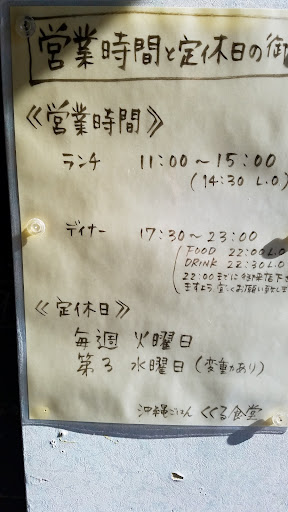 営業時間と定休日の御
《営業時間》
ランチ 11:00～15:00
(14:30 L.O)
ディナー 17:30～23:00
FOOD 22:00 L.O
DRINK 22:30 L.O
22:00までに御来店下
ますようよろしくお願い致しま
《定休日》
毎週 火曜日
第3 水曜日(変動あり)
沖縄ごはん くくる食堂